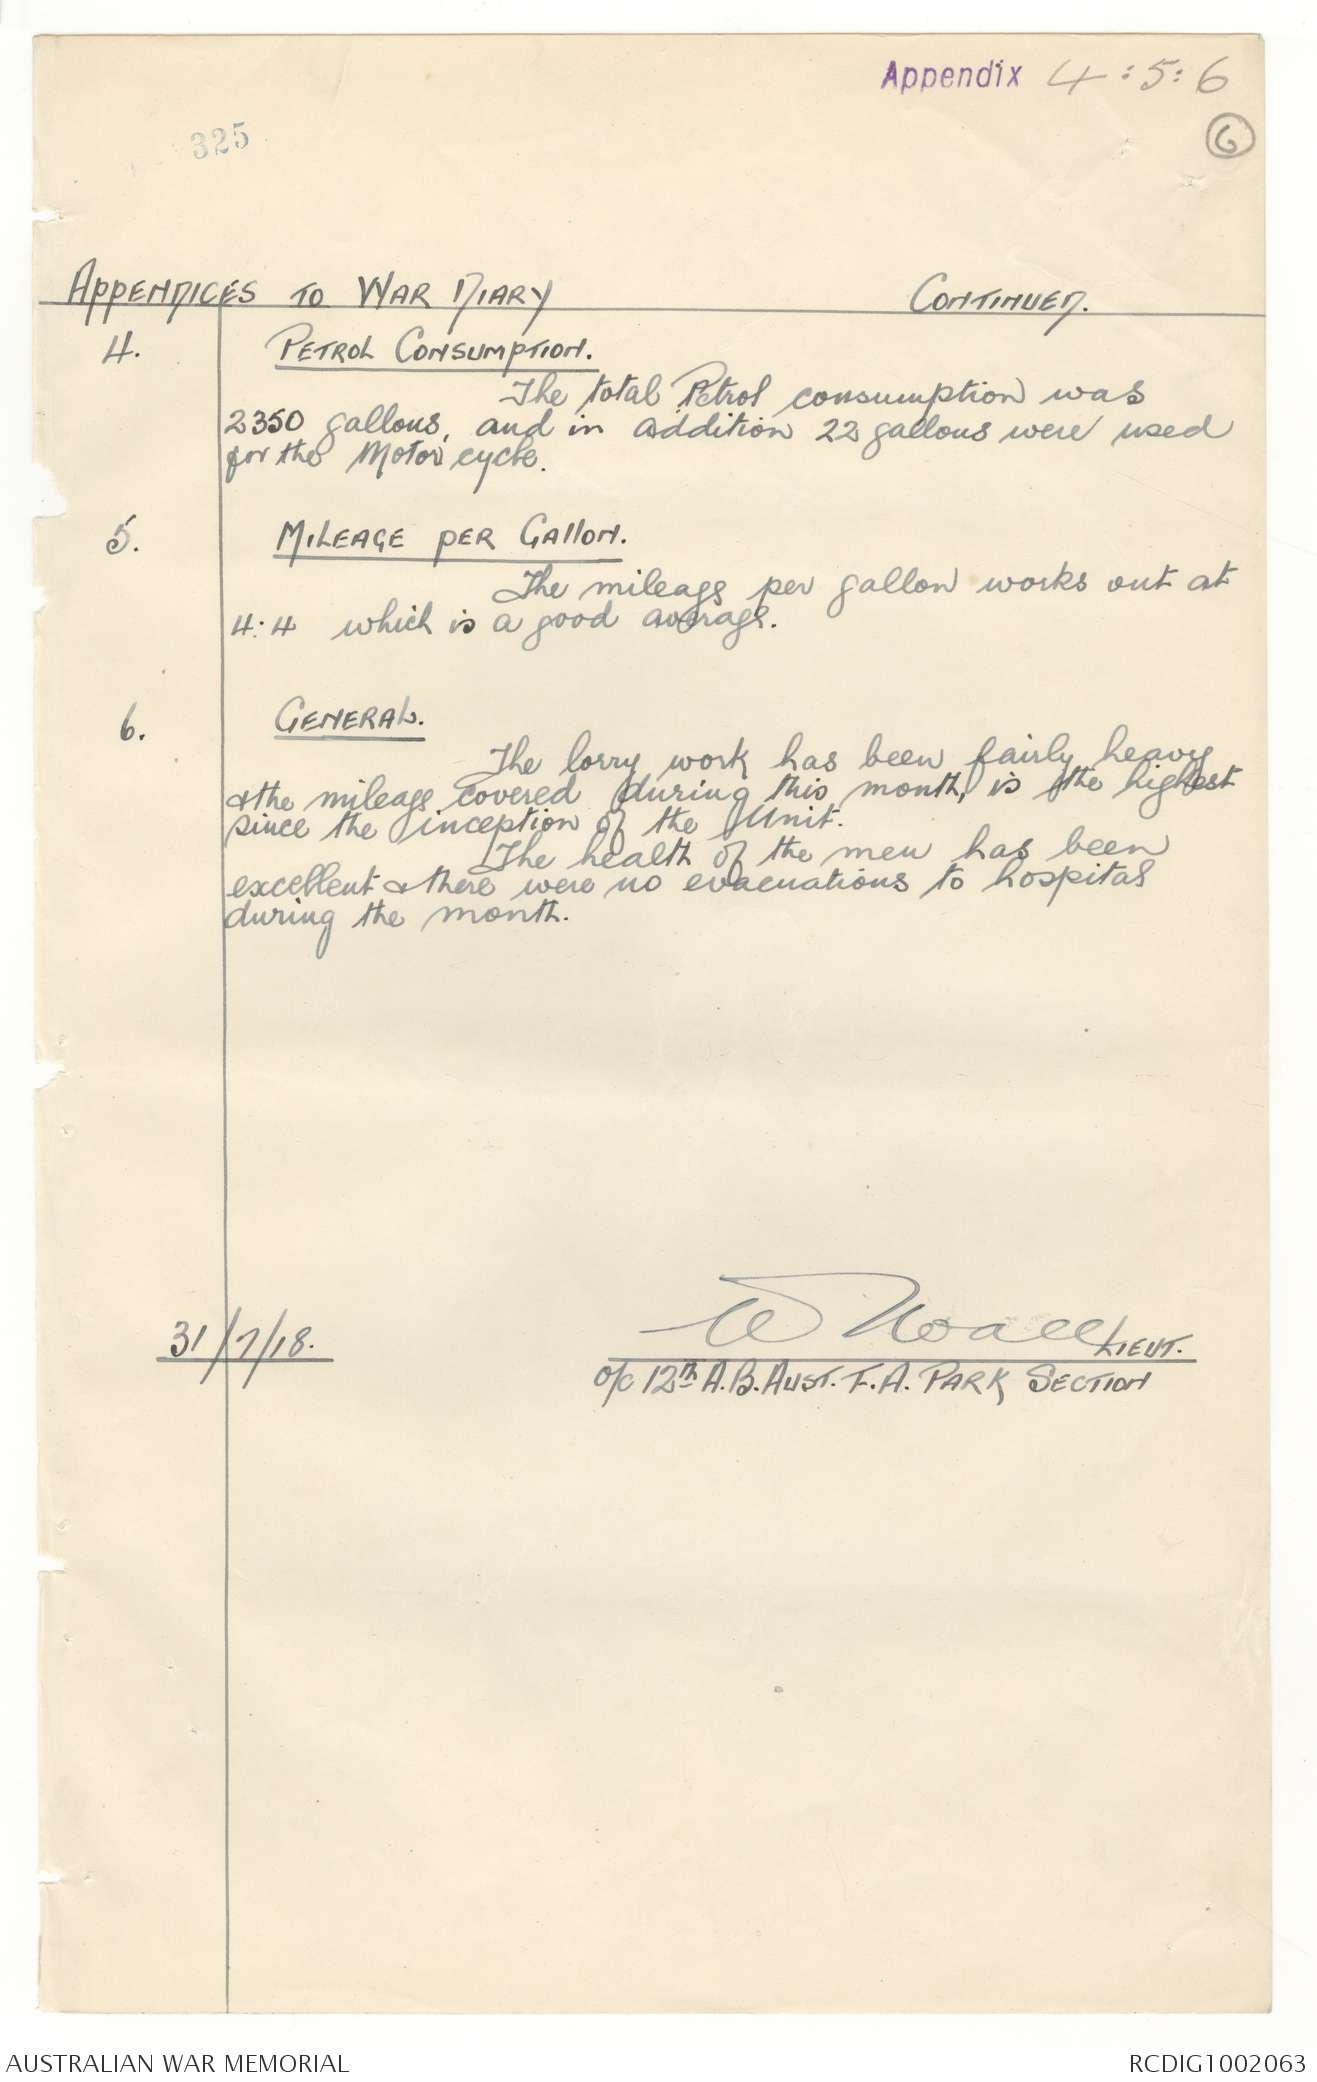 Appendix 4:5:6
6
325
APPENDICES TO WAR DIARY CONTINUED.
4. PETROL CONSUMPTION.
The total Petrol consumption was
2350 gallons, and in addition 22 gallons were used
for the Motor cycle.
5. MILEAGE PER GALLON.
The mileage per gallon works out at
4:4 which is a good average.
6. GENERAL.
The lorry work has been fairly heavy
& the mileage covered during this month, is the highest
since the inception of the Unit.
The health of the men has been
excellent & there were no evacuations to hospital
during the month.
31/7/18. LIEUT.
O/C 12th A.B. AUST. F.A. PARK SECTION
AUSTRALIAN WAR MEMORIAL RCDIG1002063